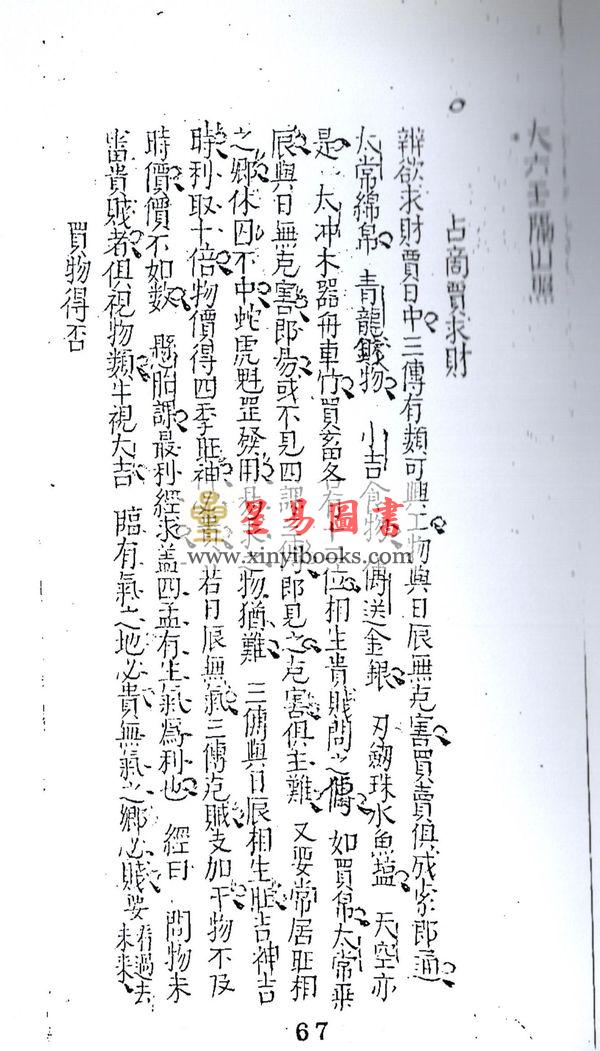 大六壬隔山照
占商賈求財
辨欲求財賈日中三傳有類可興工物與日辰無克害買賣俱成索即通
太常綿帛 青龍錢物 小吉食物 傳送金銀 刃劔珠水魚塩 天空亦
是 太冲木器舟車竹買畜各有十二位相生貴賎問之傳 如買帛太常乗
辰與日無克害即易或不見四課三傳即見之克害俱主難 又要常居旺相
之鄉休囚不中蛇虎魁罡發用 物猶難 三傳與日辰相生旺吉神吉
時利取十倍物價得四季旺神 若日辰無氣三傳克賊支加干物不及
時價價不如数 懸胎課最利經求盖四孟有生氣爲利也 經曰 問物未
當貴賎者俱視物類牛視大吉 臨有氣之地必貴無氣之鄉必賎要看過去未来
買物得否
星易圖書
www.xinyibooks.com
67